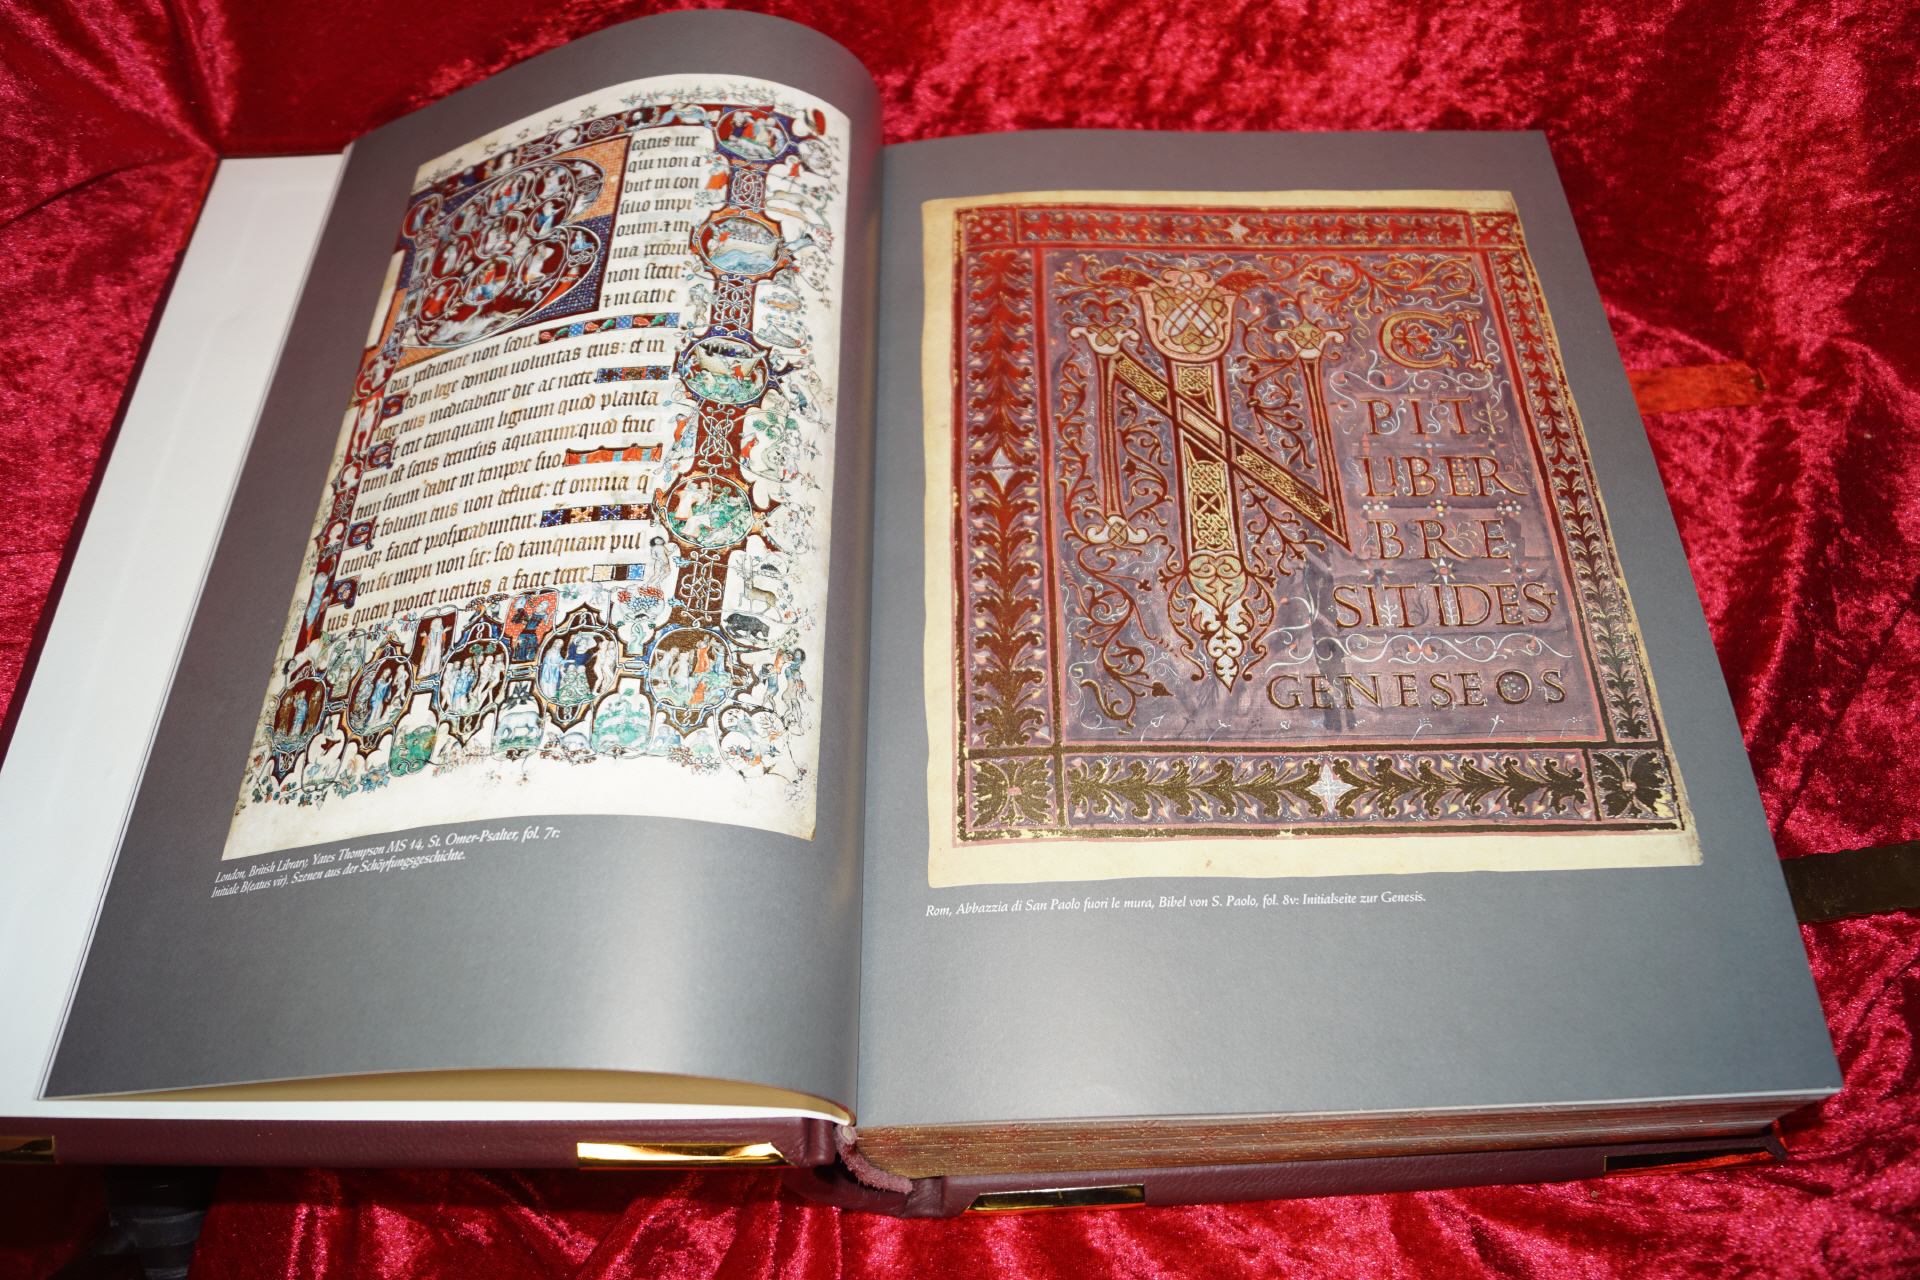 eatus uir
qui non a
biit in con
silio impi
orum. ⁊ in
uia peccorū
non stetit:
⁊ in cathe
dra pestilencie non sedit.
Sed in lege domini uoluntas eius: et in
lege eius meditabitur die ac nocte.
Et erit tamquam lignum quod planta
tum est secus decursus aquarum: quod fruc
tum suum dabit in tempore suo.
Et folium eius non defluet: et omnia q
cumq; faciet prosperabuntur.
Non sic impii non sic: sed tamquam pul
uis quem proicit uentus a facie terre.
London, British Library, Yates Thompson MS 14, St. Omer-Psalter, fol. 7r:
Initiale B(eatus vir). Szenen aus der Schöpfungsgeschichte.
IN CI
PIT
LIBER
BRE
SITIDES
GENESEOS
Rom, Abbazzia di San Paolo fuori le mura, Bibel von S. Paolo, fol. 8v: Initialseite zur Genesis.